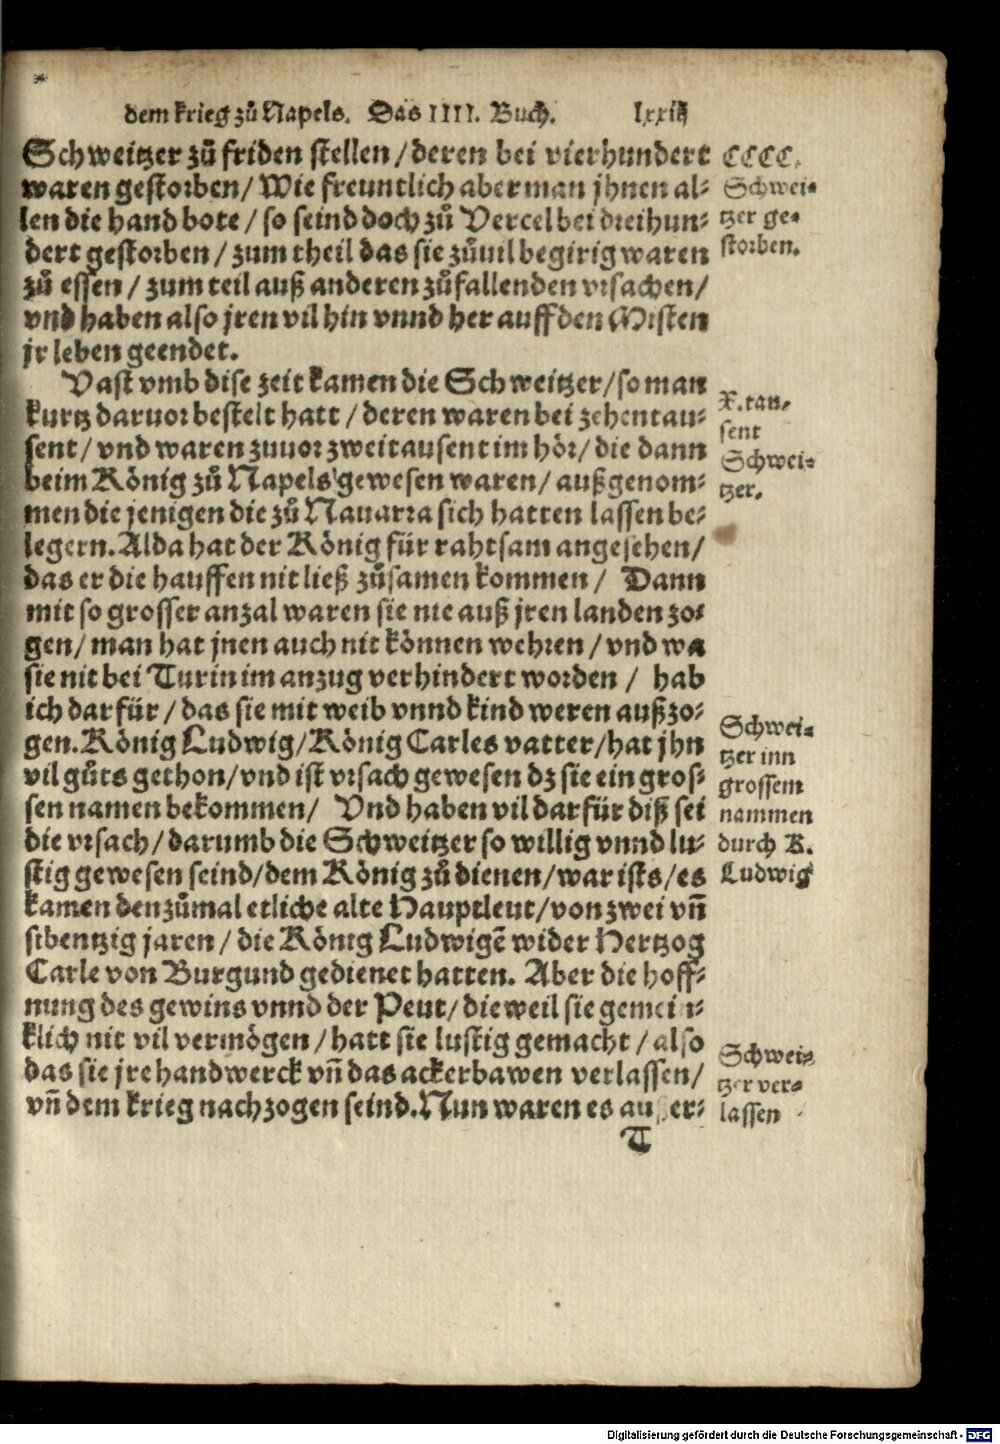 dem krieg zů Napels. Das IIII. Buch. lxxiij
Schweitzer zů friden stellen / deren bei vierhundert
waren gestorben / Wie freuntlich aber man jhnen al⸗
len die hand bote / so seind doch zů Vercel bei dreihun⸗
dert gestorben / zum theil das sie zůuil begirig waren
zů essen / zum teil auß anderen zůfallenden vrsachen /
vnd haben also jren vil hin vnnd her auff den Misten
jr leben geendet.
CCCC.
Schwei⸗
tzer ge⸗
storben.
Vast vmb dise zeit kamen die Schweitzer / so man
kurtz daruor bestelt hatt / deren waren bei zehentau⸗
sent / vnd waren zuuor zweitausent im hör / die dann
beim König zů Napels gewesen waren / außgenom⸗
men die jenigen die zů Nauarra sich hatten lassen be⸗
legern. Alda hat der König für rahtsam angesehen /
das er die hauffen nit ließ zůsamen kommen / Dann
mit so grosser anzal waren sie nie auß jren landen zo⸗
gen / man hat jnen auch nit können wehren / vnd wa
sie nit bei Turin im anzug verhindert worden / hab
ich darfür / das sie mit weib vnnd kind weren außzo⸗
gen. König Ludwig / König Carles vatter / hat jhn
vil gůts gethon / vnd ist vrsach gewesen dz sie ein gros⸗
sen namen bekommen / Vnd haben vil darfür diß sei
die vrsach / darumb die Schweitzer so willig vnnd lu⸗
stig gewesen seind / dem König zů dienen / war ists / es
kamen denzůmal etliche alte Hauptleut / von zwei vn̄
sibentzig jaren / die König Ludwigē wider Hertzog
Carle von Burgund gedienet hatten. Aber die hoff⸗
nung des gewins vnnd der Peut / dieweil sie gemein⸗
klich nit vil vermögen / hatt sie lustig gemacht / also
das sie jre handwerck vn̄ das ackerbawen verlassen /
vn̄ dem krieg nachzogen seind. Nun waren es au er⸗
X. tau⸗
sent
Schwei⸗
tzer.
Schwei⸗
tzer inn
grossem
nammen
durch K.
Ludwig
Schwei⸗
tzer ver⸗
lassen
T
Digitalisierung gefördert durch die Deutsche Forschungsgemeinschaft - DFG